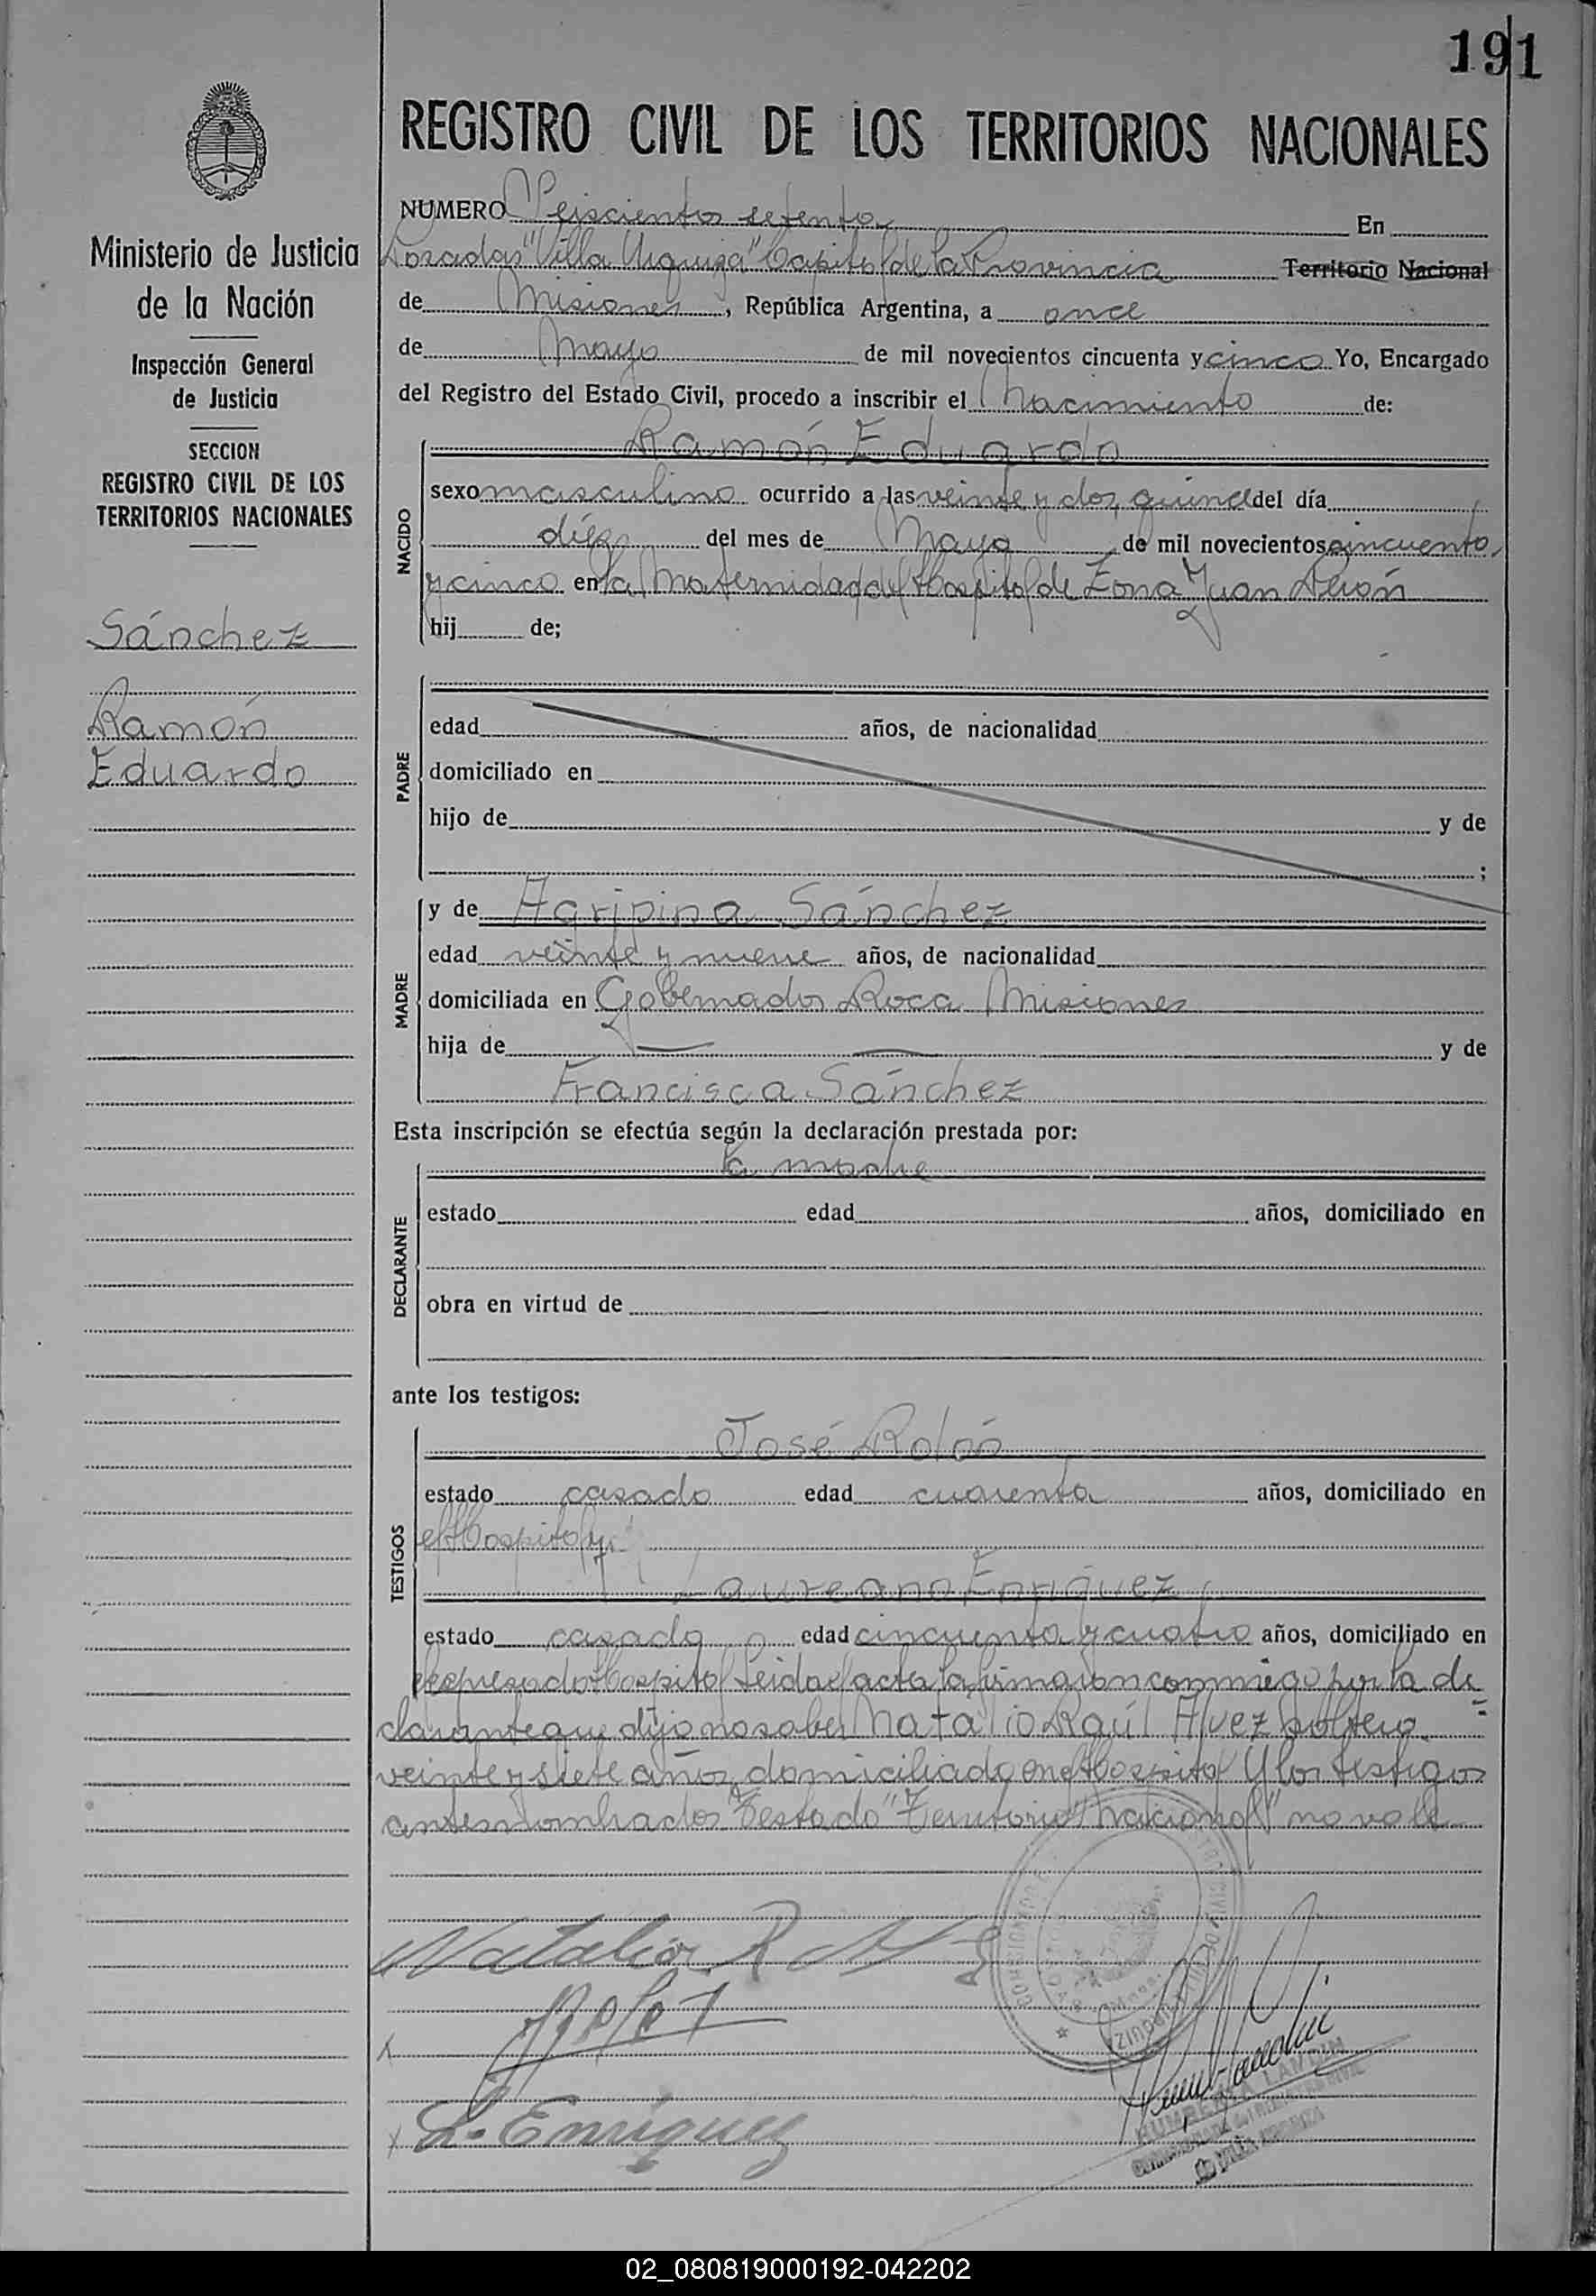 191
REGISTRO CIVIL DE LOS TERRITORIOS NACIONALES
Ministerio de Justicia
de la Nación
Inspección General
de Justicia
SECCION
REGISTRO CIVIL DE LOS
TERRITORIOS NACIONALES
Sánchez
Ramón
Eduardo
NUMERO Seiscientos setenta En
Posadas "Villa Urquiza" Capital de la Provincia Territorio Nacional
de Misiones, República Argentina, a once
de Mayo de mil novecientos cincuenta y cinco Yo, Encargado
del Registro del Estado Civil, procedo a inscribir el Nacimiento de:
NACIDO
Ramón Eduardo
sexo masculino ocurrido a las veinte y dos, quince del día
diéz del mes de Mayo de mil novecientos cincuenta
y cinco en la Maternidad del Hospital de Zona Juan Perón
hij de;
PADRE
edad años, de nacionalidad
domiciliado en
hijo de y de
;
MADRE
y de Agripina Sánchez
edad veinte y nueve años, de nacionalidad
domiciliada en Gobernador Roca Misiones
hija de — — y de
Francisca Sánchez
Esta inscripción se efectúa según la declaración prestada por:
DECLARANTE
la madre
estado edad años, domiciliado en
obra en virtud de
ante los testigos:
TESTIGOS
José
estado casado edad cuarenta años, domiciliado en
el Hospital y
Laureano Enriquez
estado casado edad cincuenta y cuatro años, domiciliado en
el expresado Hospital Leida el acta la firmaron conmigo por la de
clarante que dijo no saber Natalio Raúl Alvez soltero
veinte y siete años domiciliado en el Hospital Y los testigos
antes nombrados Testado "Territorio Nacional" no vale
Natalio R
L. Enriquez
HUMBERTO LANDINI
02_080819000192-042202